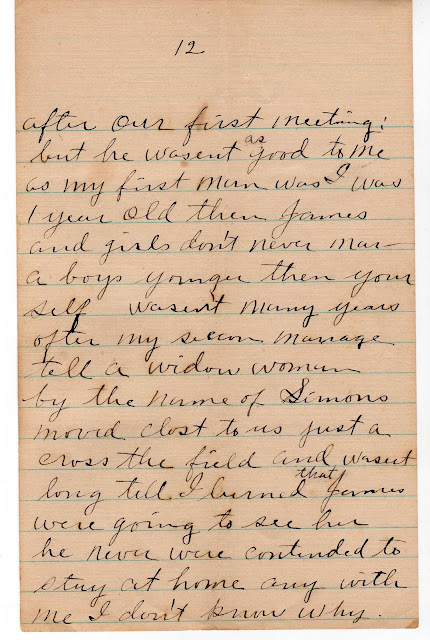 12
after our first meeting;
but he wasent as good to me
as my first man was I was
1 year old then James
and girls don't never mar-
a boys younger then your
self wasent many years
after my secon marrage
tell a widow woman
by the name of Simons
moved clost to us just a
cross the field and wasent
long tell I lurned that James
were going to see her
he never were contended to
stay at home any with
me I don't know why.